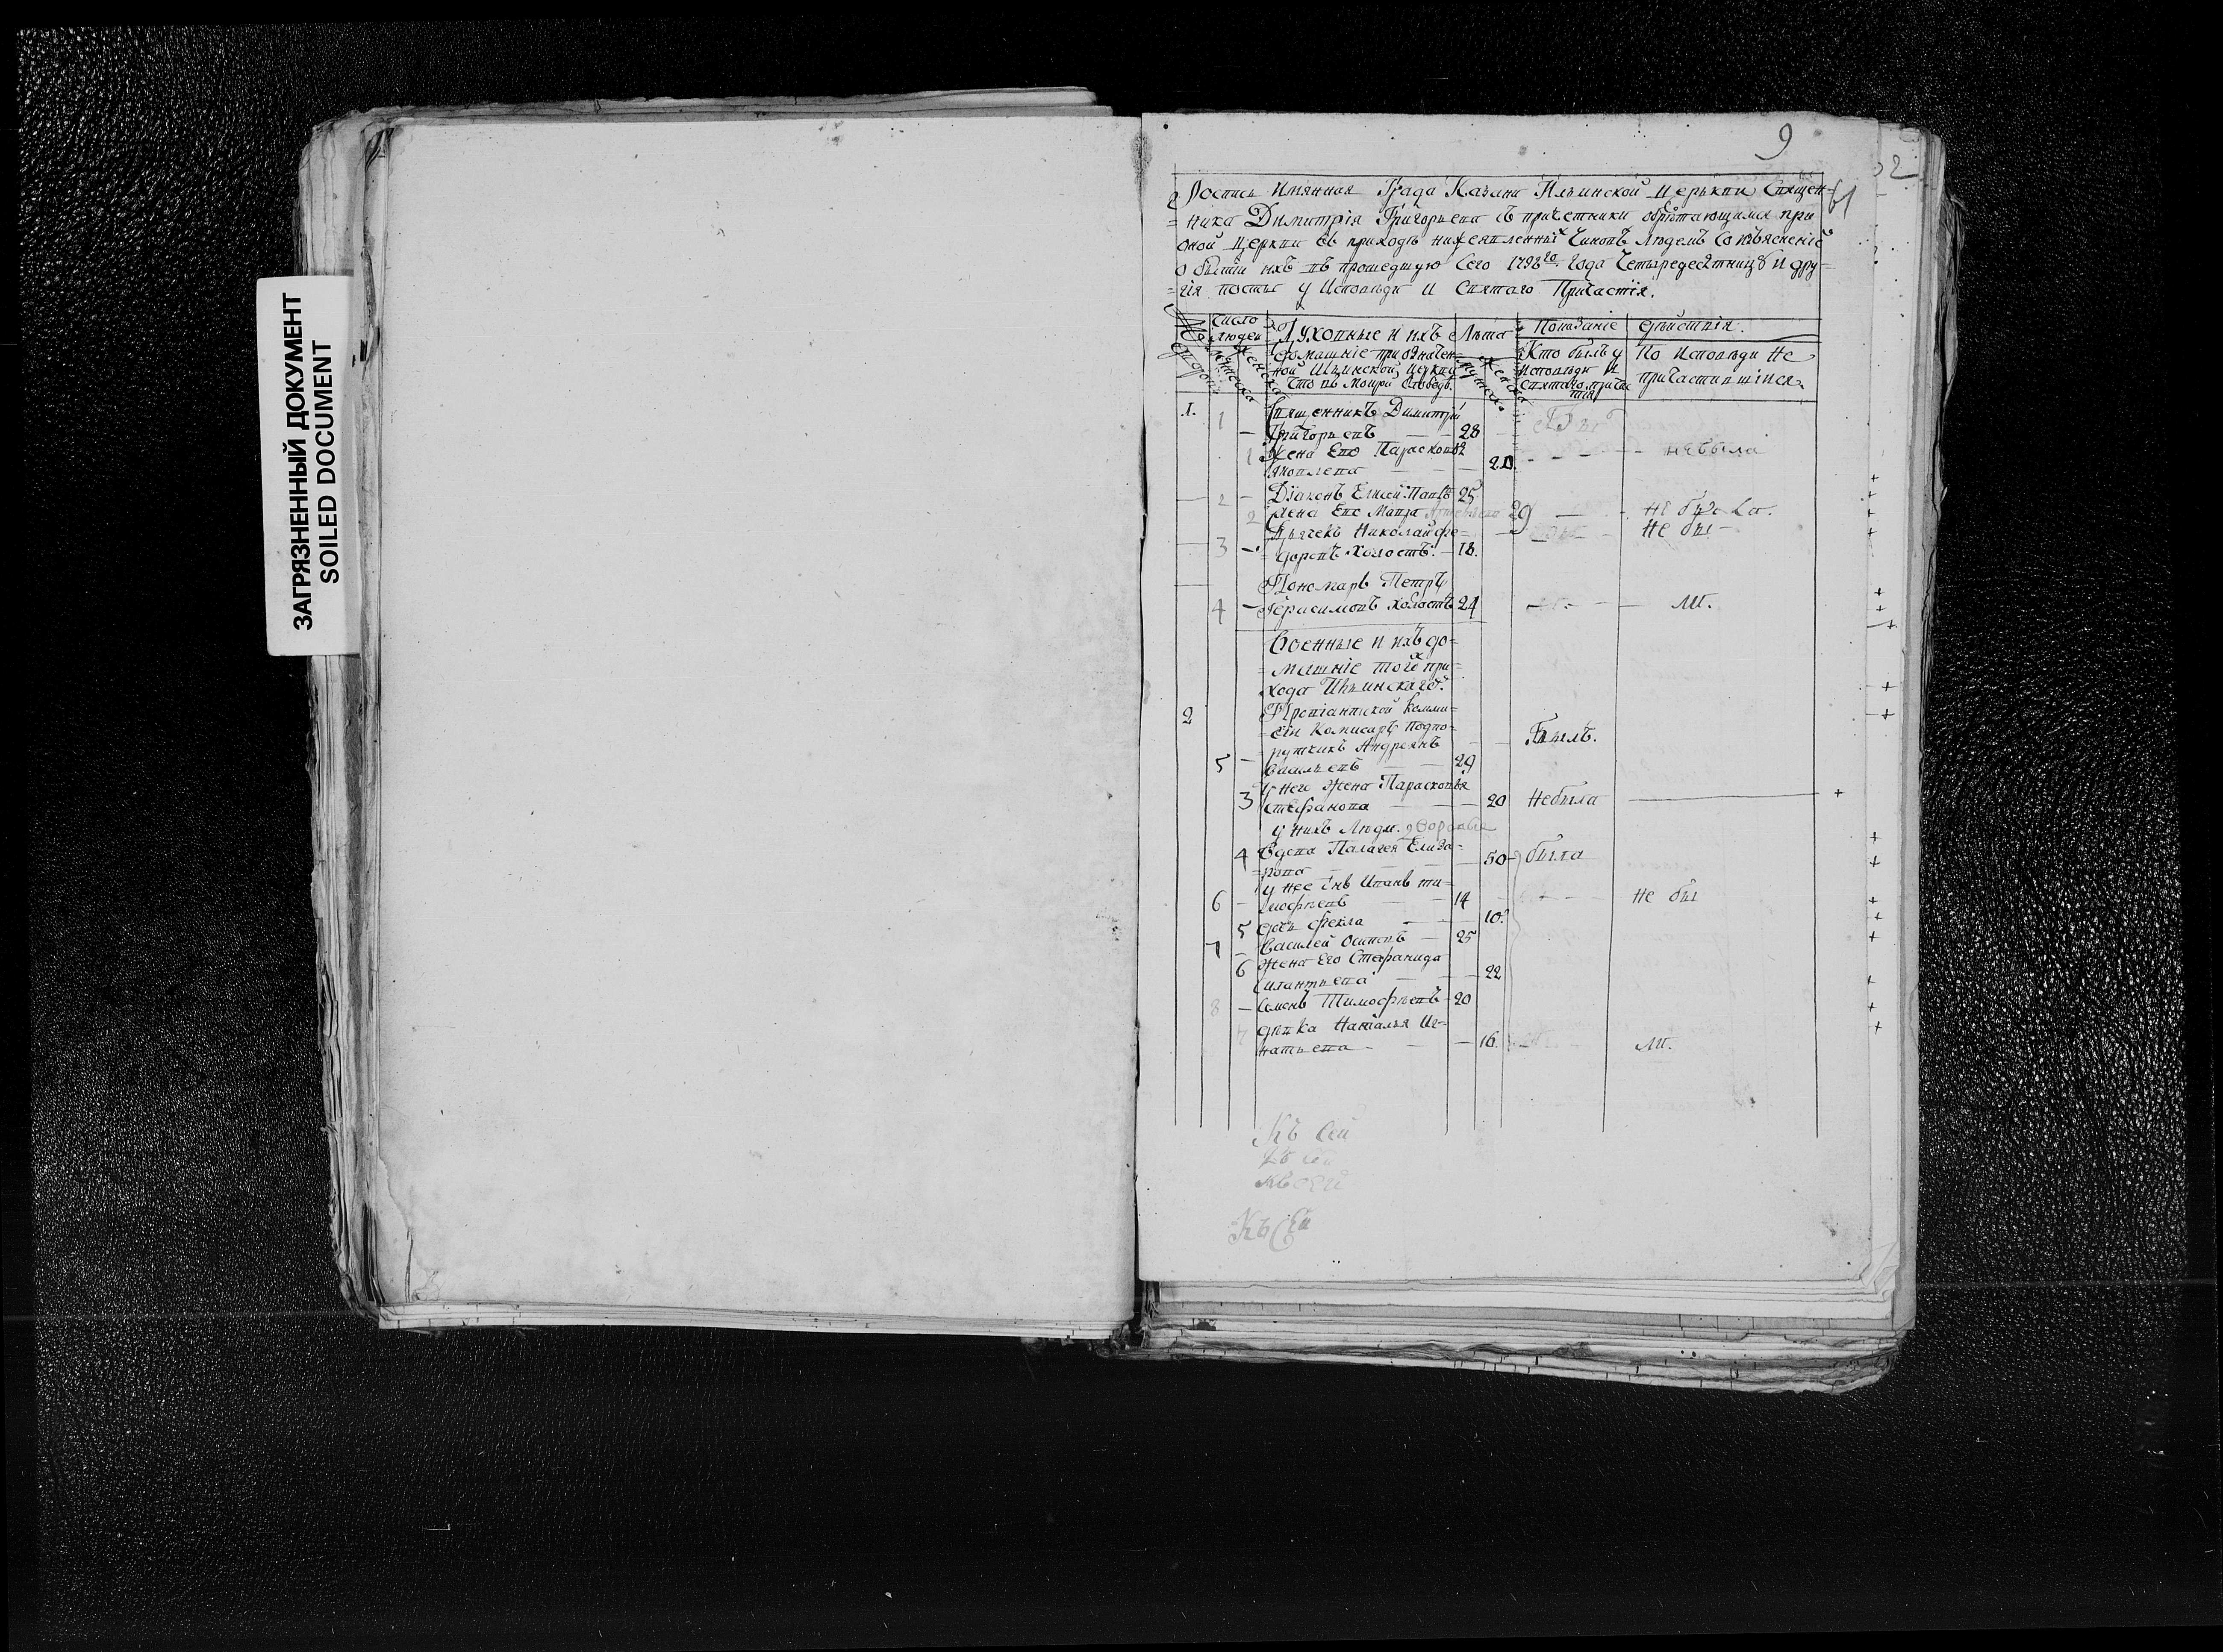 ЗАГРЯЗНЕННЫЙ ДОКУМЕНТ
SOILED DOCUMENT
9
61
Роспись Имянная Града Казани Ильинской Церькви Священ=
=ника Димитрія Григорьева съ причетники обрѣтающимся при
оной Церкви въ приходѣ нижеявленныхъ Чиновъ Людемъ Со изъясненіе
о бытіи ихъ въ прошедшую Сего 1798го Года Четыредесятницу и дру=
=гія посты у Исповѣди и Святаго Причастія.
Число людей
Духовные и ихъ
Лѣта
Показаніе
дѣйствія.
домашніе при означен=
ной Ильинской Церкви
Что въ Мокрой Слободѣ.
Кто былъ у
Исповѣди и
Святаго Прича
стія
По Исповѣди Не
причастившіися
1. 1 Священникъ Димитрій
Григорьевъ 28
1 Жена Его Парасковья
Яковлева 20 небыла
2 Діаконъ Елисей 25
2 Жена Его Мавра 29 не была.
Дьячекъ Николай Фе= Не бы
3 =доровъ Холостъ. 18.
Пономарь Петръ
4 Герасимовъ холостъ 24 МП.
Военные и ихъ до=
=машніе того при=
хода Ильинскаго.
2 Провіантской Комми=
=сіи Комисаръ Подпо=
ручикъ Андреянъ Былъ.
5 Васильевъ 29
У него Жена Парасковья
3 Стефанова 20 Небыла
у нихъ Люди дворовые
4 Вдова Палагея Елиза= 50 была
=рова
у нее снъ Иванъ ти=
6 =мофѣевъ 14 не бы
5 дочь Фекла 10.
7 Василей Осиповъ 25
6 Жена Его Стефанида
Силантьева 22
8 Семенъ Тимофѣевъ 20
7 дѣвка Наталья Иг=
натьева 16. МП.
Къ Сей
Къ сей
Къ сей
Къ Сей